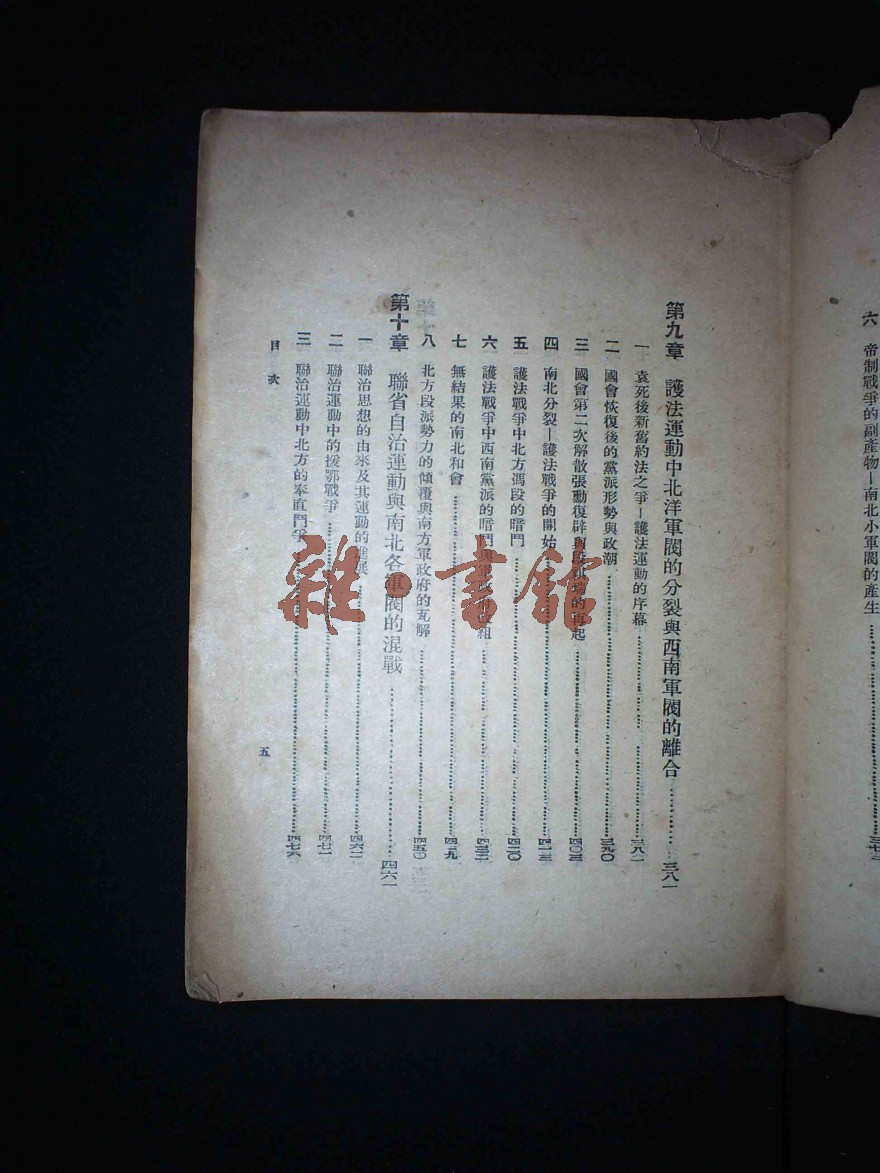 六　帝制戰爭的副產物—南北小軍閥的產生
第九章　護法運動中北洋軍閥的分裂與西南軍閥的離合……三八一
一　袁死後新舊約法之爭—護法運動的序幕……三八二
二　國會恢復後的黨派形勢與政潮……三九〇
三　國會第二次解散張勳復辟與段祺瑞的再起……四〇三
四　南北分裂—護法戰爭的開始……四一三
五　護法戰爭中北方馮段的暗鬥……四二〇
六　護法戰爭中西南黨派的暗鬥與軍政府改組……四三二
七　無結果的南北和會……四三九
八　北方段派勢力的傾覆與南方軍政府的瓦解……四五〇
第十章　聯省自治運動與南北各軍閥的混戰……四六一
一　聯治思想的由來及其運動的進展……四六二
二　聯治運動中的援鄂戰爭……四七一
三　聯治運動中北方的奉直鬥爭……四七六
目次
五
雜·書館